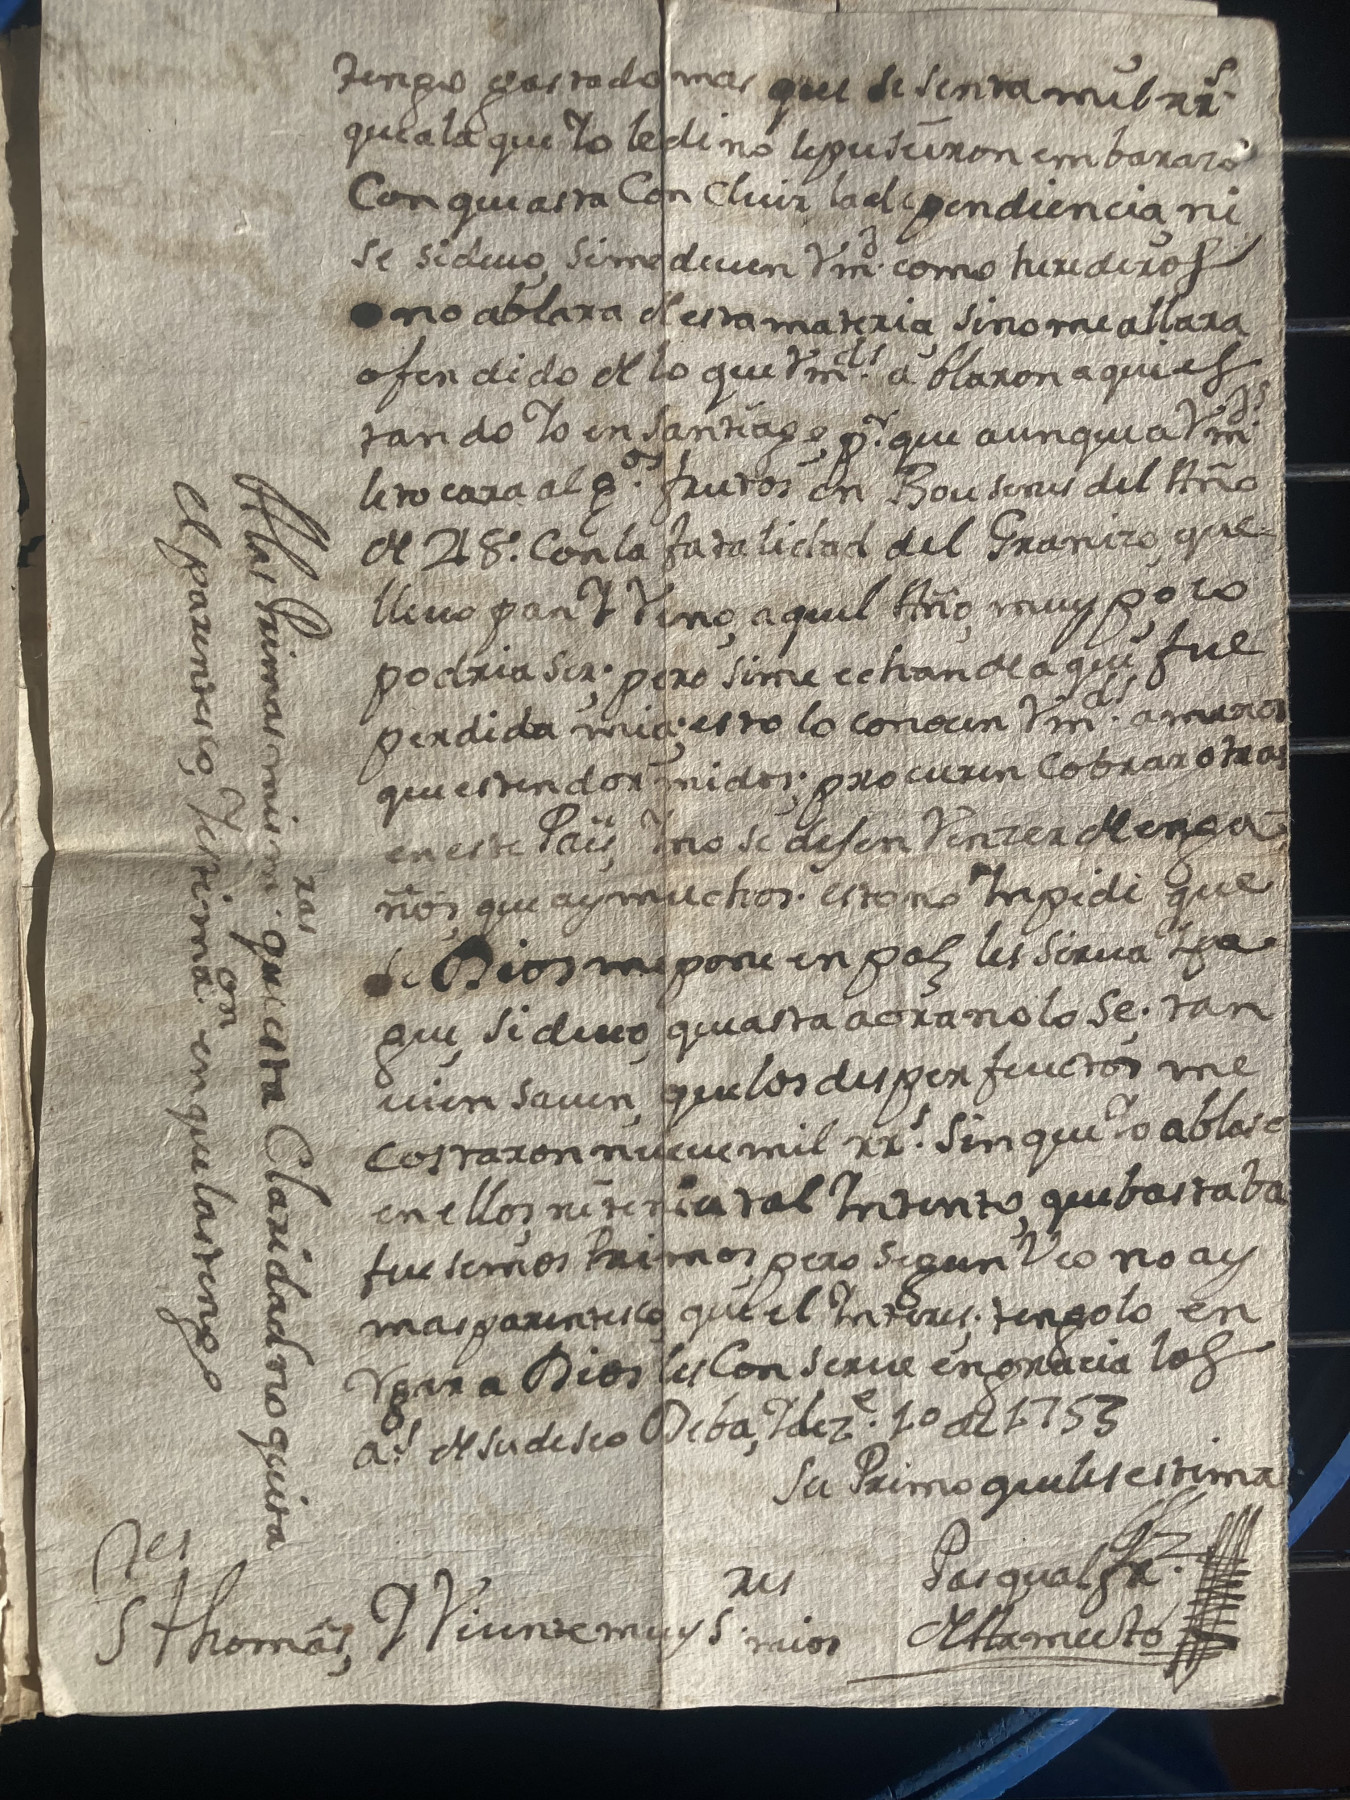 tengo gastado mas que sesenta mil rrs.
que a la que Yo le di no le pusieron embarazo
Con qui asta Con Cluir la dependiencia, ni
se si devo, si me deven Vmd. como herederos
no ablara de esta materia, si no me allara
ofendido de lo que Vmds. ablaron aqui es
tando Yo en Santiago, pr. que aunque a Vmds.
le tocara algos. frutos en Bouseses del Año
de 48. Con la fatalidad del Granizo, que
llevo pan Y Vino, aquel Año, muy poco
podria ser. pero si me echan de aqui fue
perdida mia; esto lo conocen Vmds. a menos
que esten dormidos; procuren Cobrar otras
en este Pais, Y no se dejen Venzer de enga
ños, que ay muchos. esto no Impidi que
se Dios me pone en paz les sirva Y pa
gue, si devo, qui asta aora no lo se. tan
vien saven, que los desperfeuctos me
costaron nueve mil rrs. sin que Yo ablase
en ellos, ni tenia tal Intento, que bastaba
fuesemos Primos, pero segun Veo no ay
mas parentesco, que el Interes. tengolo en
Y para Dios les Conserve en gracia los
as. de su deseo Deba, Y deze. 10 de 1753
Su Primo que les estima
Pasqual Frz.
de
Ses res
S Thomas, Y Vicente muy S. mios
A las Primas mis m. ras que esta Claridad no quita
el parentesco, Y estimaon. en que las tengo